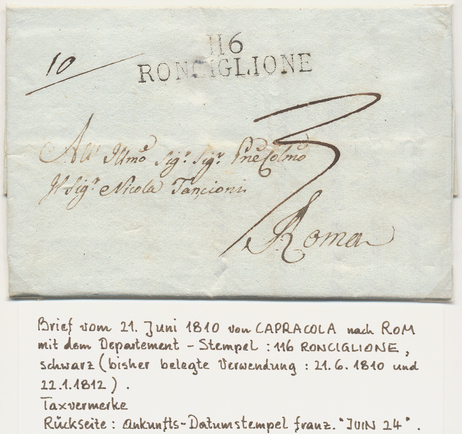 116
RONCIGLIONE
10
3
All' Illmo Sigr. Sigr. Pne Colmo
Il Sigr. Nicola Tancioni
Roma
Brief vom 21. Juni 1810 von CAPRACOLA nach ROM
mit dem Departement-Stempel: 116 RONCIGLIONE,
schwarz (bisher belegte Verwendung: 21.6.1810 und
22.1.1812).
Taxvermerke
Rückseite: Ankunfts-Datumstempel franz. "JUIN 24".